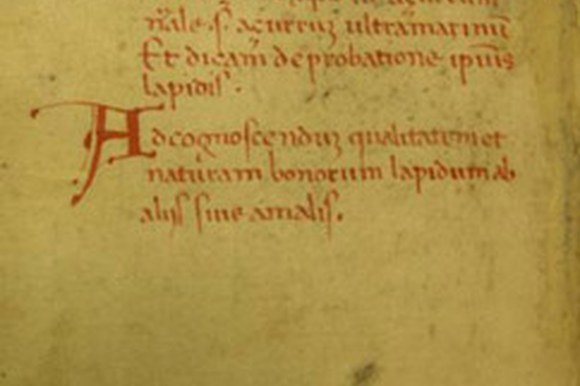 açurrum ultramarinū
Et dicam de probatione ipius
lapidis.
Ad cognoscenduȝ qualitatem et
naturam bonorum lapidum ab
aliis siue a malis.